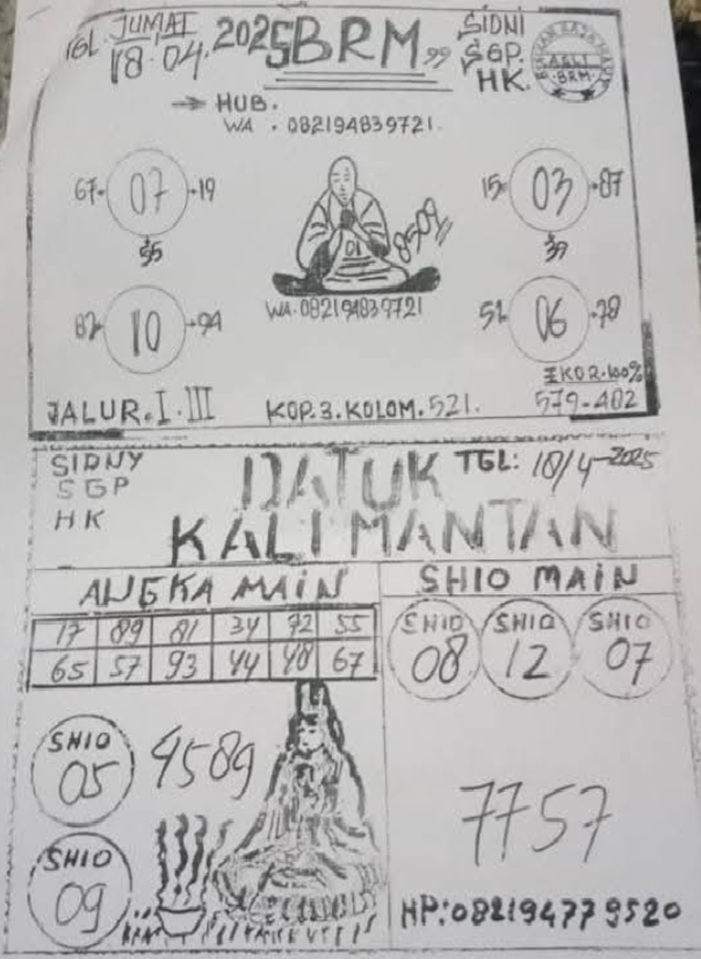 TGL. JUMAT 18.04.2025
BRM 99
SIDNI
SGP.
HK.
ASLI
BRM
HUB.
WA . 082194839721.
67 07 19
55
15 03 87
39
01
8509
82 10 94
WA. 082194839721
51 06 78
JALUR. I. III
KOP. 3. KOLOM. 521.
EKOR. 100%
579-402
SIDNY
SGP
HK
DATUK
TGL: 18/4-2025
KALIMANTAN
ANGKA MAIN
17 89 81 34 72 55
65 57 93 44 48 67
SHIO MAIN
SHIO 08
SHIO 12
SHIO 07
SHIO 05
9589
SHIO 09
7757
HP: 082194779520